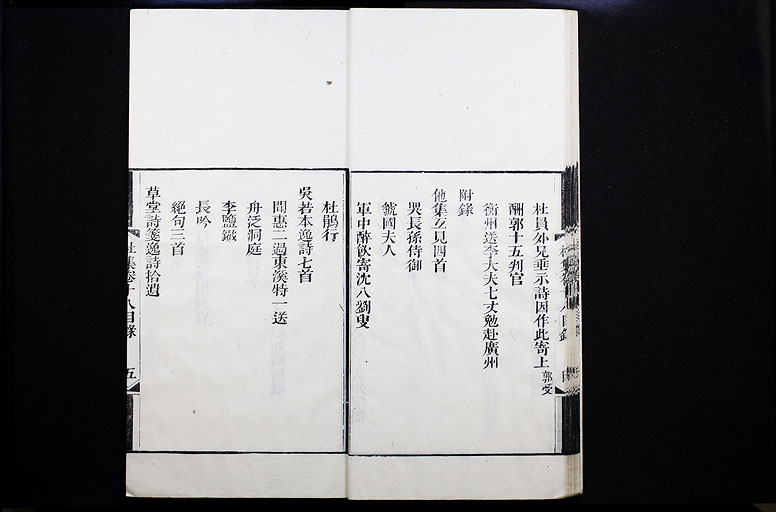 杜員外兄垂示詩因作此寄上 郭受
酬郭十五判官
衡州送李大夫七丈勉赴廣州
附錄
他集互見四首
哭長孫侍御
虢國夫人
軍中醉飲寄沈八劉叟
杜鵑行
吳若本逸詩七首
聞惠二過東溪特一送
舟泛洞庭
李鹽鐵
長吟
絕句三首
草堂詩箋逸詩拾遺
杜集卷十八目錄 五